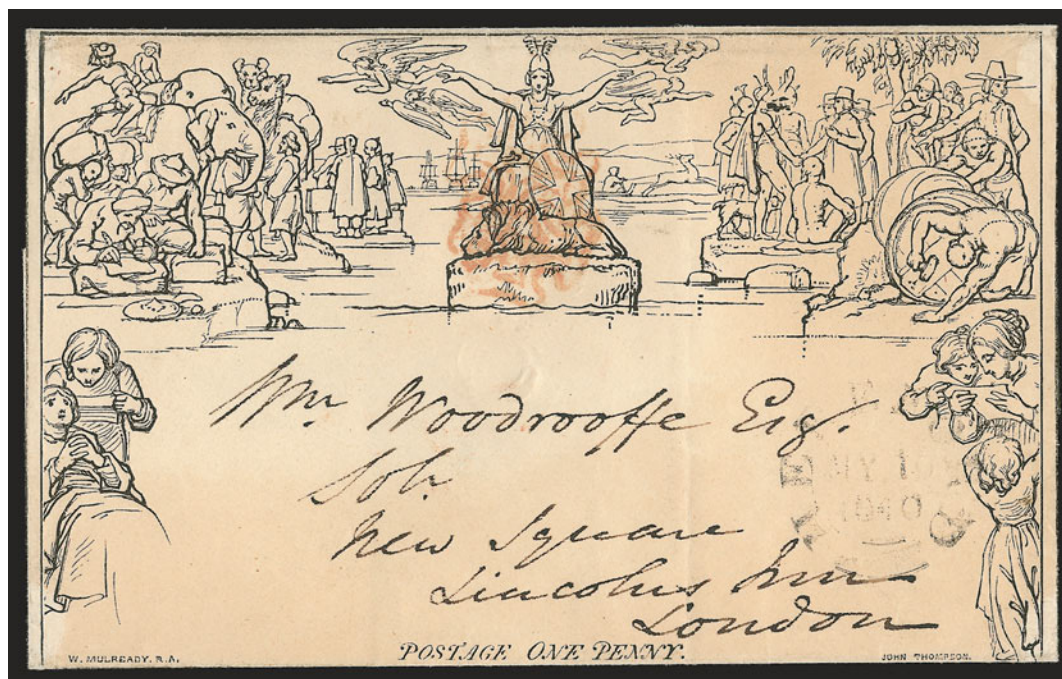 Wm Woodrooffe Esq.
Solr
New Square
Lincolns Inn
London
MY 10
1840
W. MULREADY. R.A.
POSTAGE ONE PENNY.
JOHN THOMPSON.